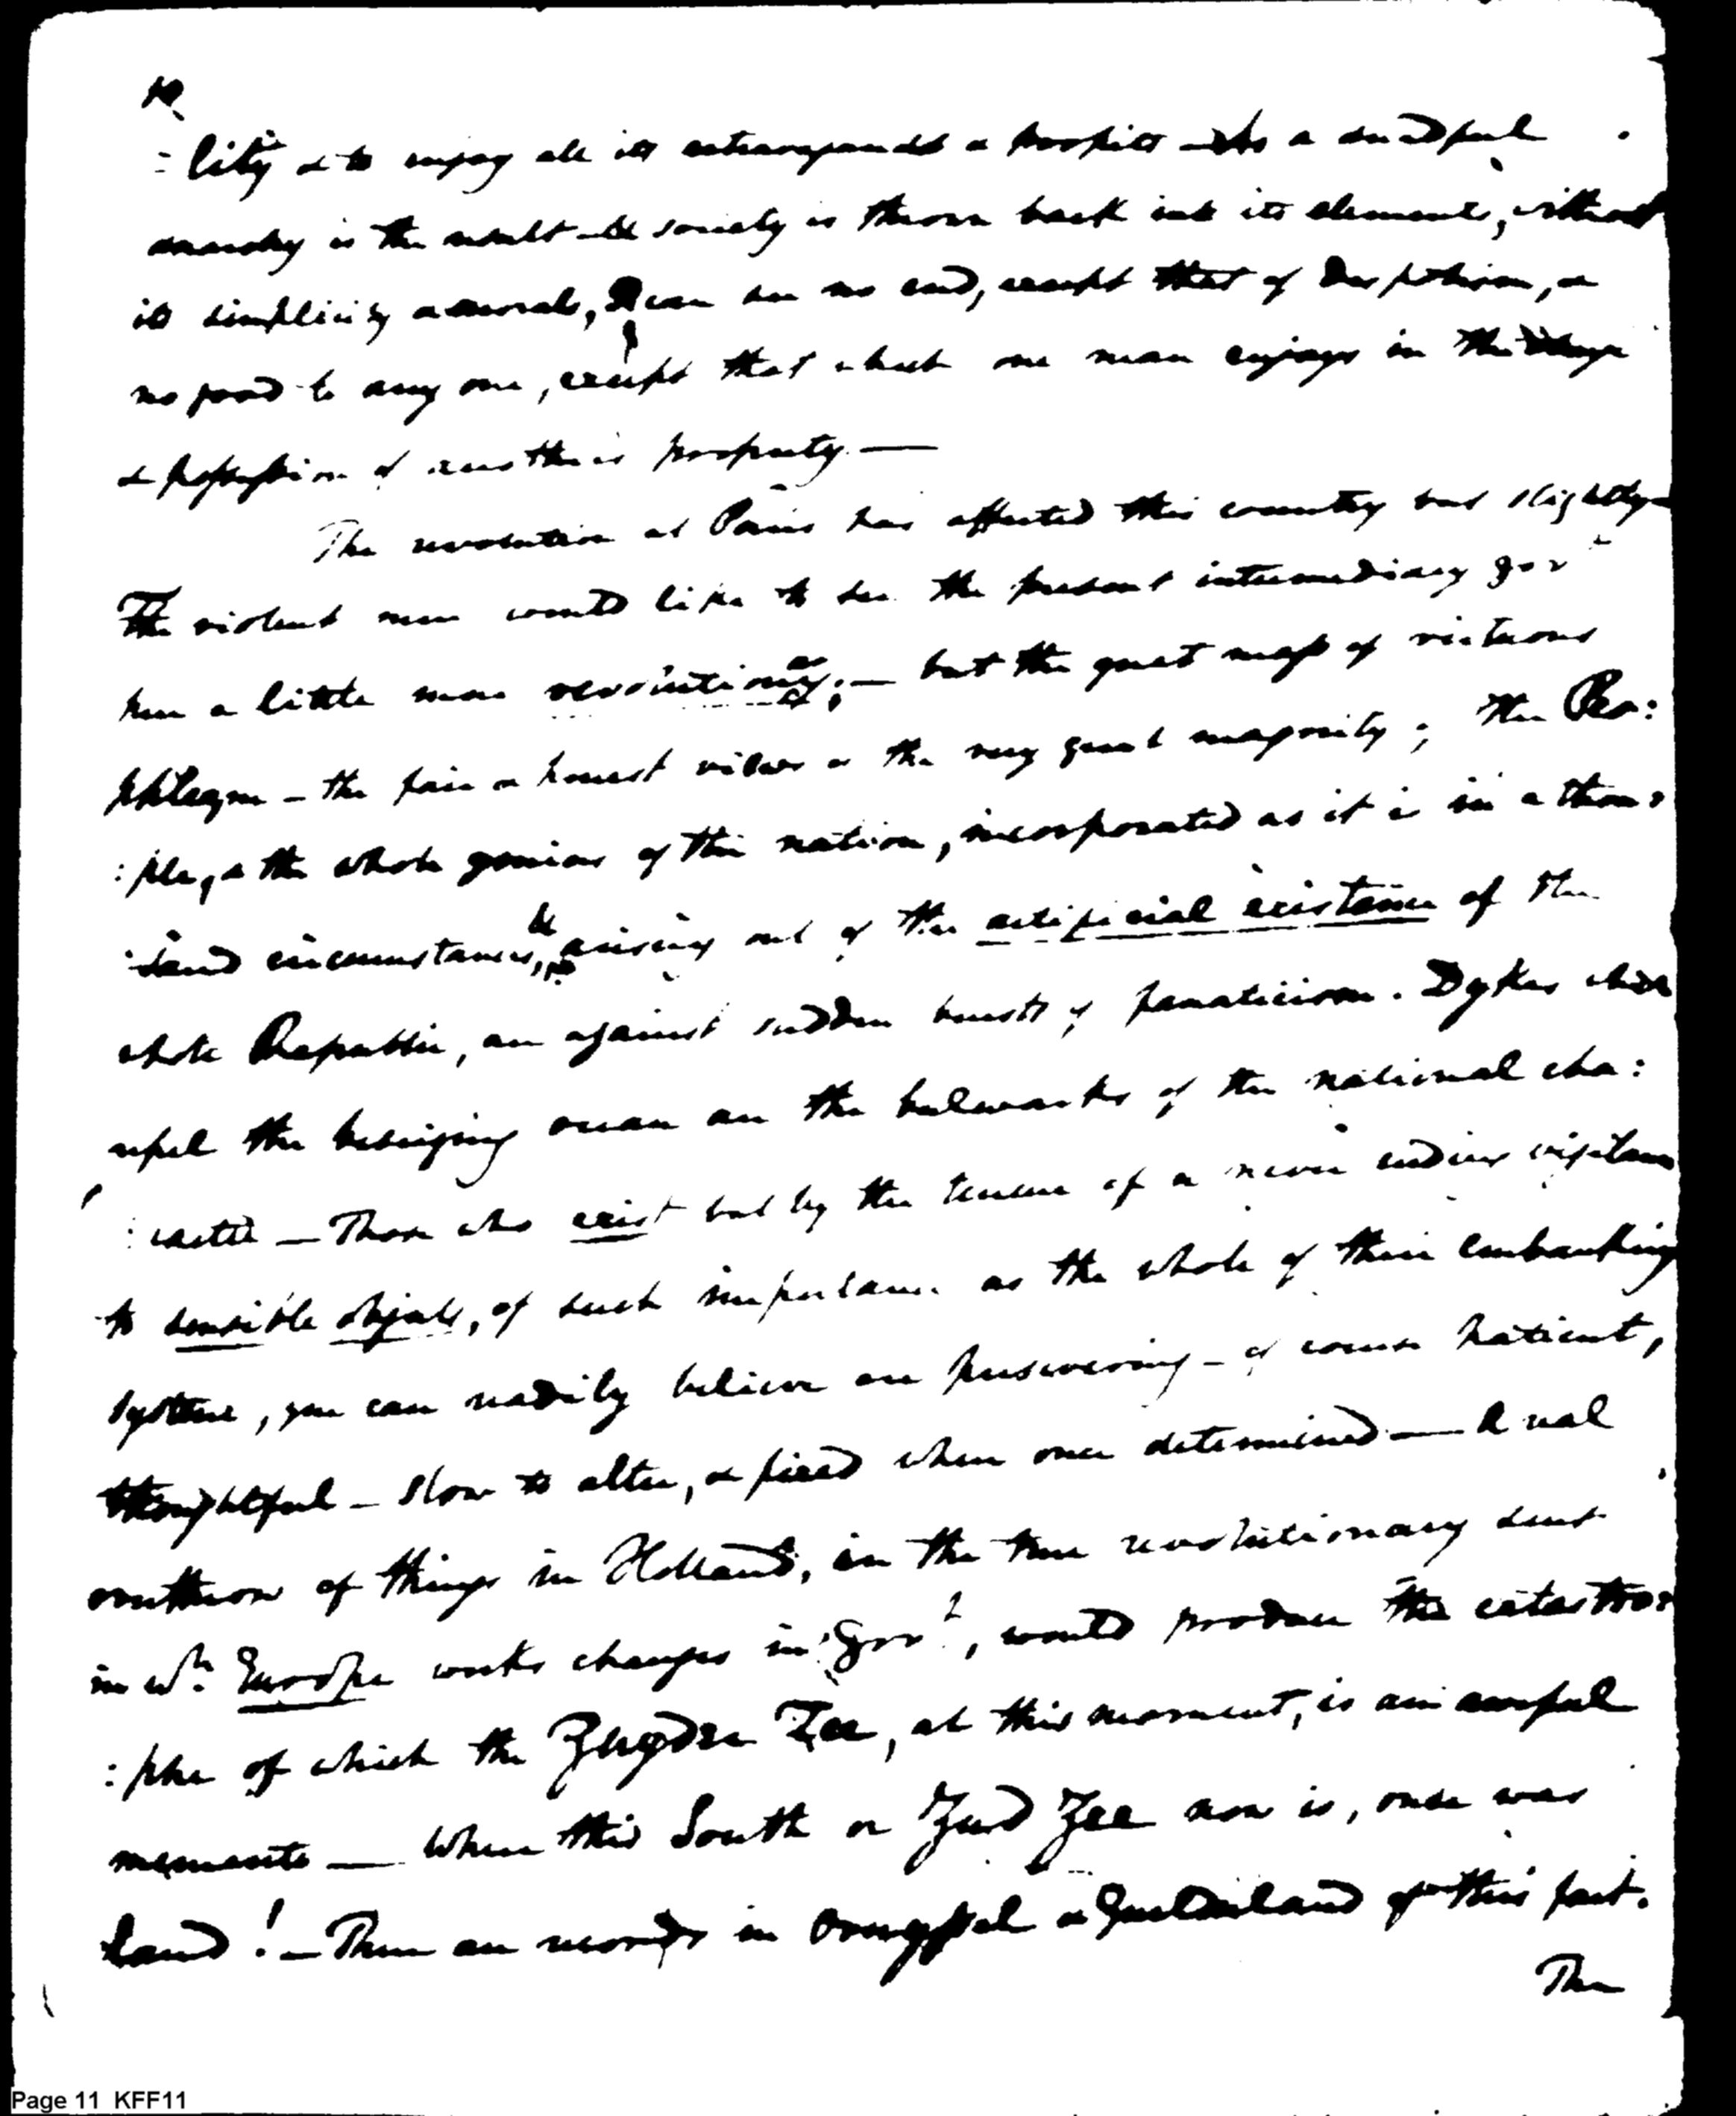 10
:lity & to enjoy all its extravagances & profits - a dreadful
anarchy is the result - the society is thrown back into its elements, without
its simplicity & morals, & can see no end, except that of despotism, or
no good to any one, except that which one man enjoys in the
& possession of another's property. —
The revolution at Paris has affected this country but slightly
The violent men would like to see the present intermediary govt
here a little more revolutionary; — but the great mass of
phlegm - the fair & honest views of the very great majority; the Peo:
:ple, & the whole genius of the nation, incorporated as it is in a thou:
:sand circumstances, arising out of the artificial existence of the
whole Republic, are against sudden bursts of fanaticism. Dykes which
repel the besieging ocean are the bulwarks of the national cha:
:racter — Those who exist but by the tenure of a never ending vigilance
to sensible objects, of such importance as the whole of their embanking
system, you can readily believe are persevering - of course patient,
thoughtful - slow to alter, & fixed when once determined — A real
overthrow of things in Holland, in the true revolutionary sense
in wh. Europe works changes in govt, would produce the catastro:
:phe of which the Zuyder Zee, at this moment, is an awful
memento — When this South or Zud Zee now is, once was
land! — There are records in & Guelderland of this fact.
The
Page 11 KFF11